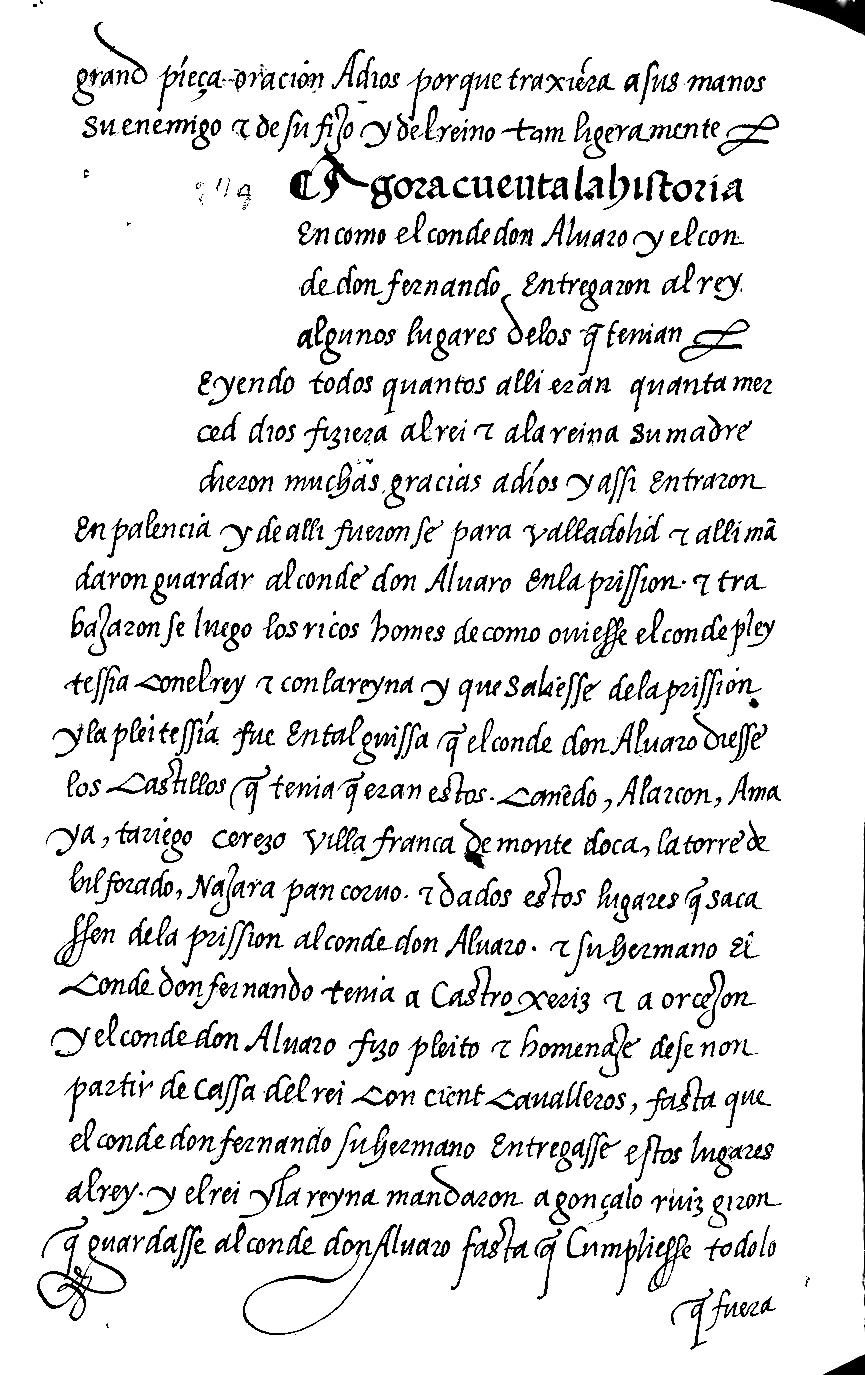 grand pieça oración Adios porque traxiera asus manos
su enemigo ⁊ de su fijo y del reino tam ligeramente
Agora cuenta la historia
En como el conde don Alvaro y el con
de don fernando Entregaron al rey
algunos lugares delos q̃ tenian
Eyendo todos quantos alli eran quanta mer
ced dios fiziera al rei ⁊ ala reina su madre
dieron muchas gracias adíos y assi Entraron
En palencia y de alli fueronse para valladolid ⁊ alli mã
daron guardar al conde don Alvaro En la prission. ⁊ tra
bajaronse luego los ricos homes de como oviesse el conde pley
tessia con el rey ⁊ con la reyna y que saliesse de la prissión
y la pleitessía fue En tal guissa q̃ el conde don Alvaro diesse
los Castillos q̃ tenia q̃ eran estos. Cañedo, Alarcon, Ama
ya, tariego cerezo villa franca de monte doca, la torre de
bilforado, Najara pancorvo. ⁊ dados estos lugares q̃ saca
ssen de la prission al conde don Alvaro. ⁊ su hermano El
Conde don fernando tenia a Castro xeriz ⁊ a orcejon
y el conde don Alvaro fizo pleito ⁊ homenaje de se non
partir de cassa del rei con cient cavalleros, fasta que
el conde don fernando su hermano Entregasse estos lugares
al rey. y el rei y la reyna mandaron a gonçalo ruiz giron
q̃ guardasse al conde don Alvaro fasta q̃ Cumpliesse todo lo
q̃ fuera